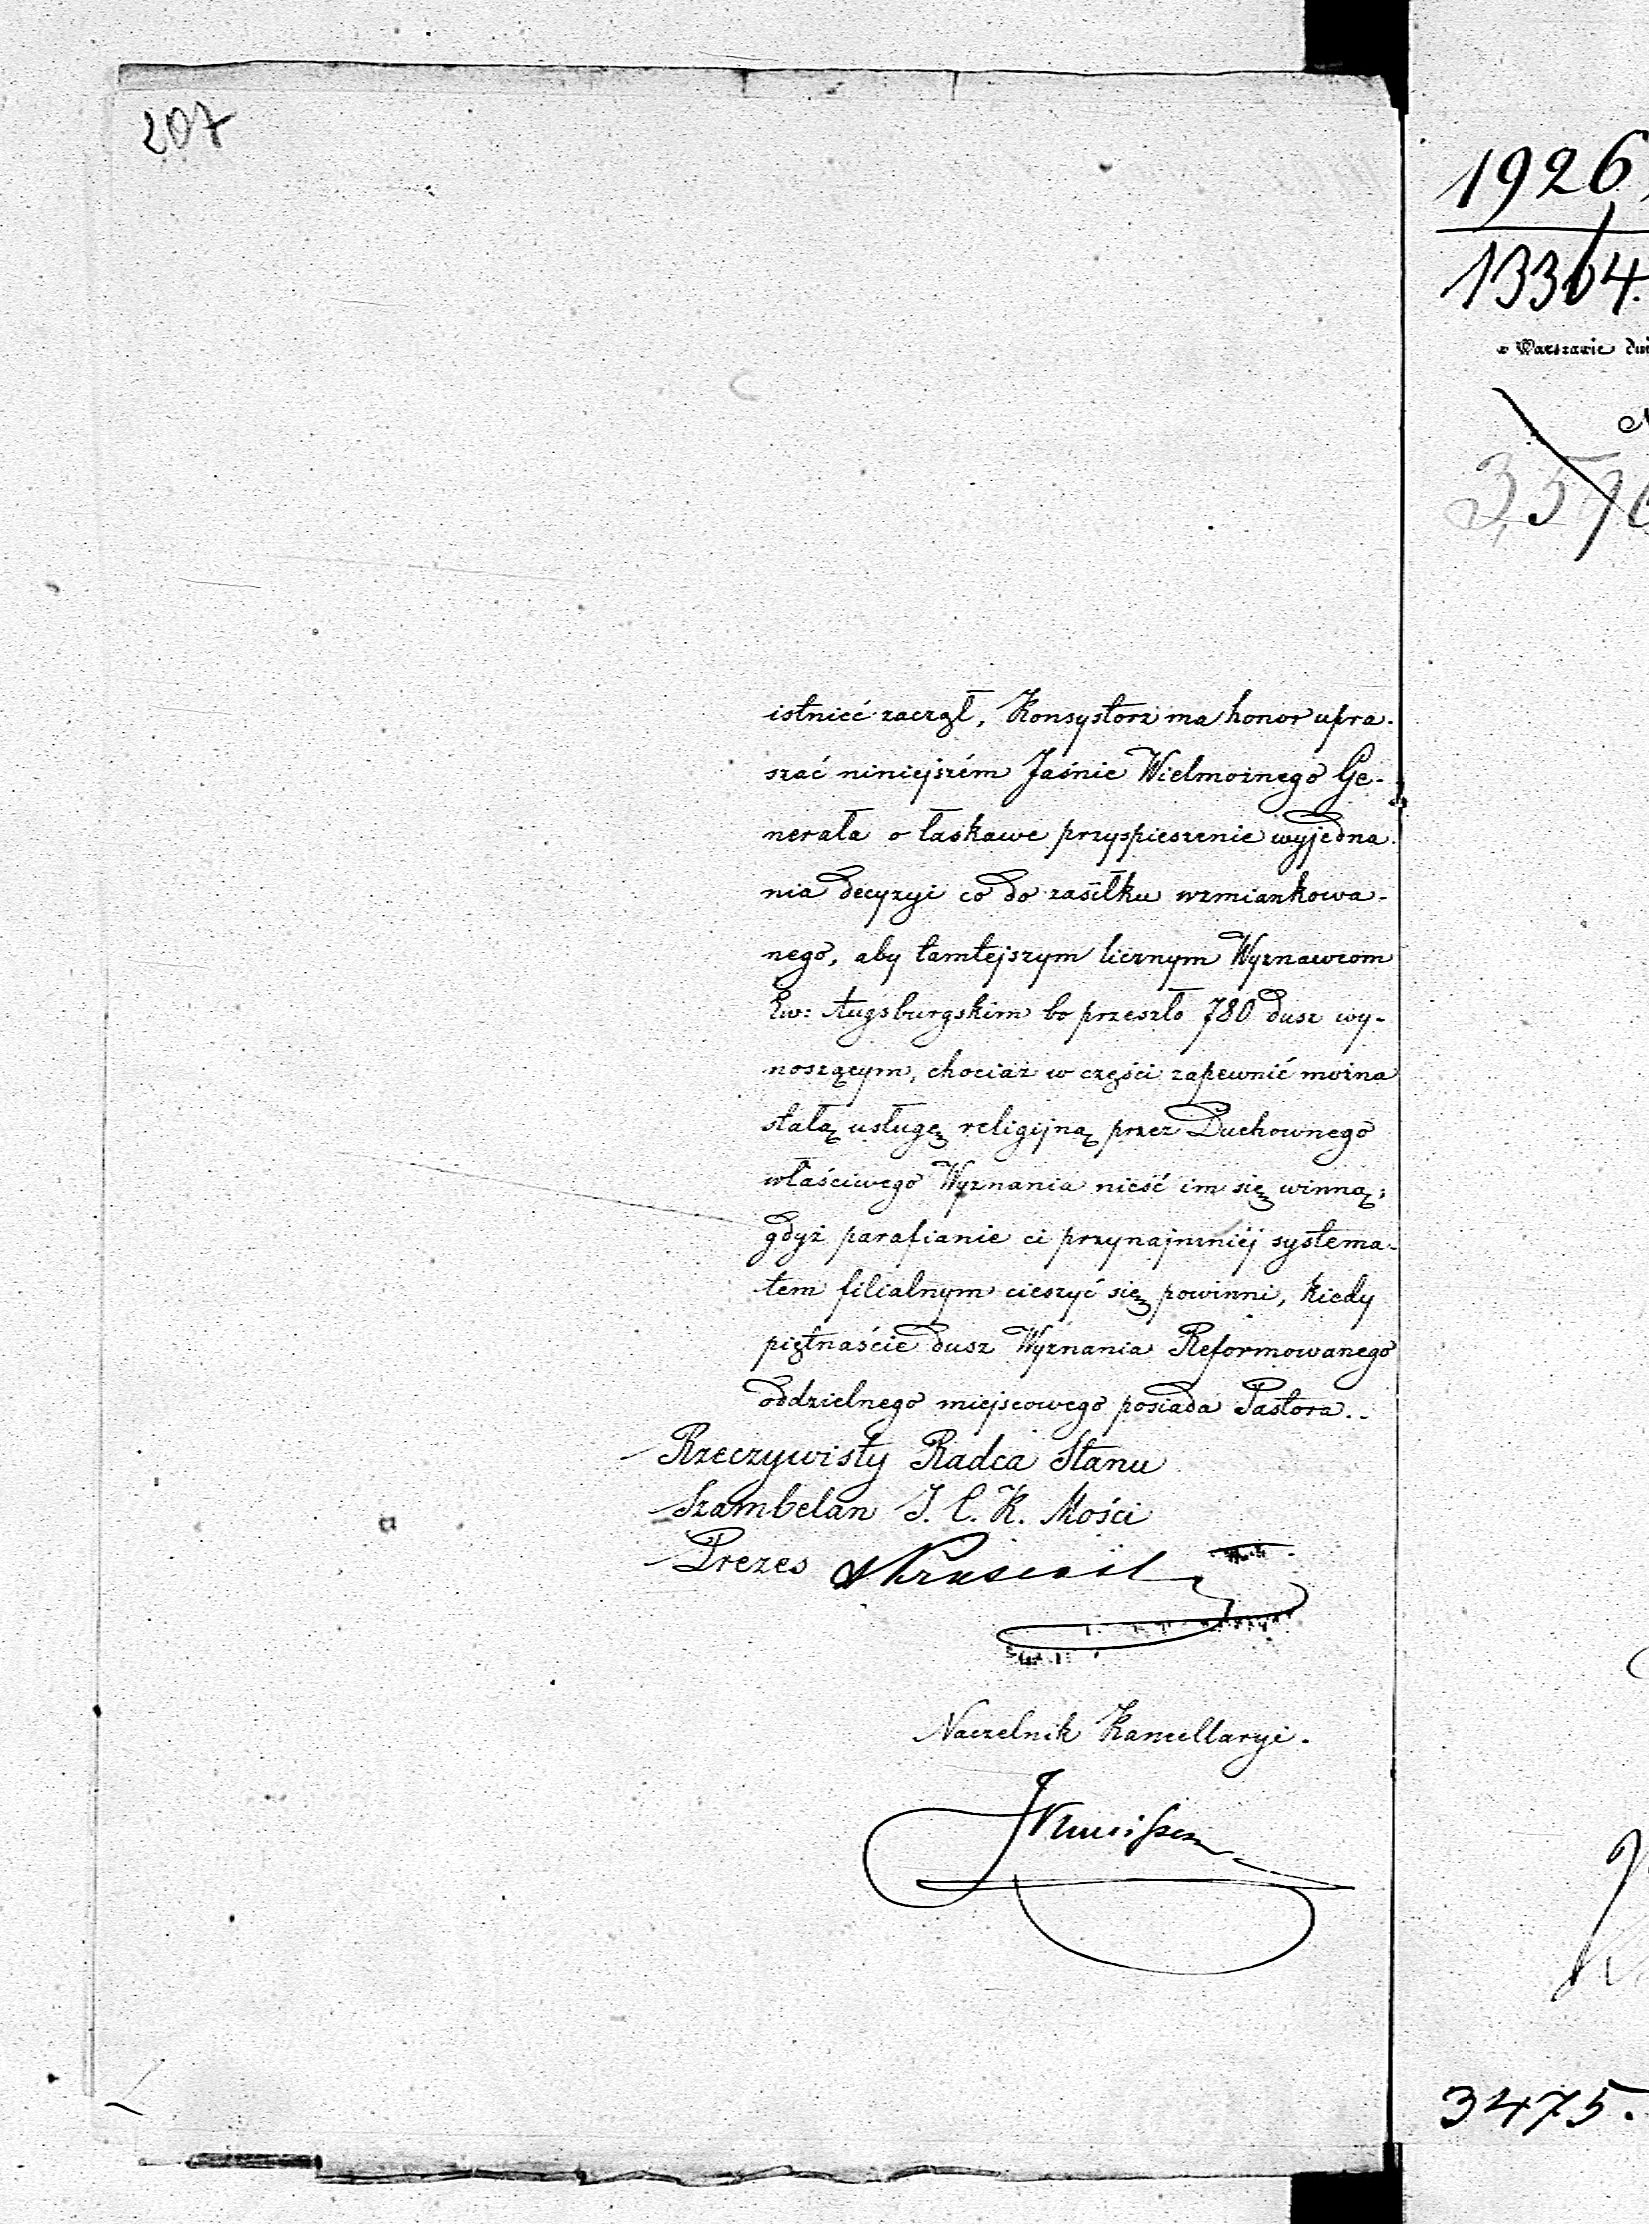 207
istnieć zaczął, Konsystorz ma honor upra-
szać niniejszém Jaśnie Wielmożnego Ge-
nerała o łaskawe przyspieszenie wyjedna-
nia decyzyi co do zasiłku wzmiankowa-
nego, aby tamtejszym licznym Wyznawcom
Ew: Augsburgskim bo przeszło 780 dusz wy-
noszącym, chociaż w części zapewnić można
stałą usługę religijną przez Duchownego
właściwego Wyznania nieść im się winną;
gdyż parafianie ci przynajmniéj systema-
tem filialnym cieszyć się powinni, kiedy
piętnaście dusz Wyznania Reformowanego
oddzielnego miejscowego posiada Pastora.
Rzeczywisty Radca Stanu
Szambelan J. C. K. Mości
Prezes
Naczelnik Kancellaryi.
1926
13364.
w Warszawie dni
3475.